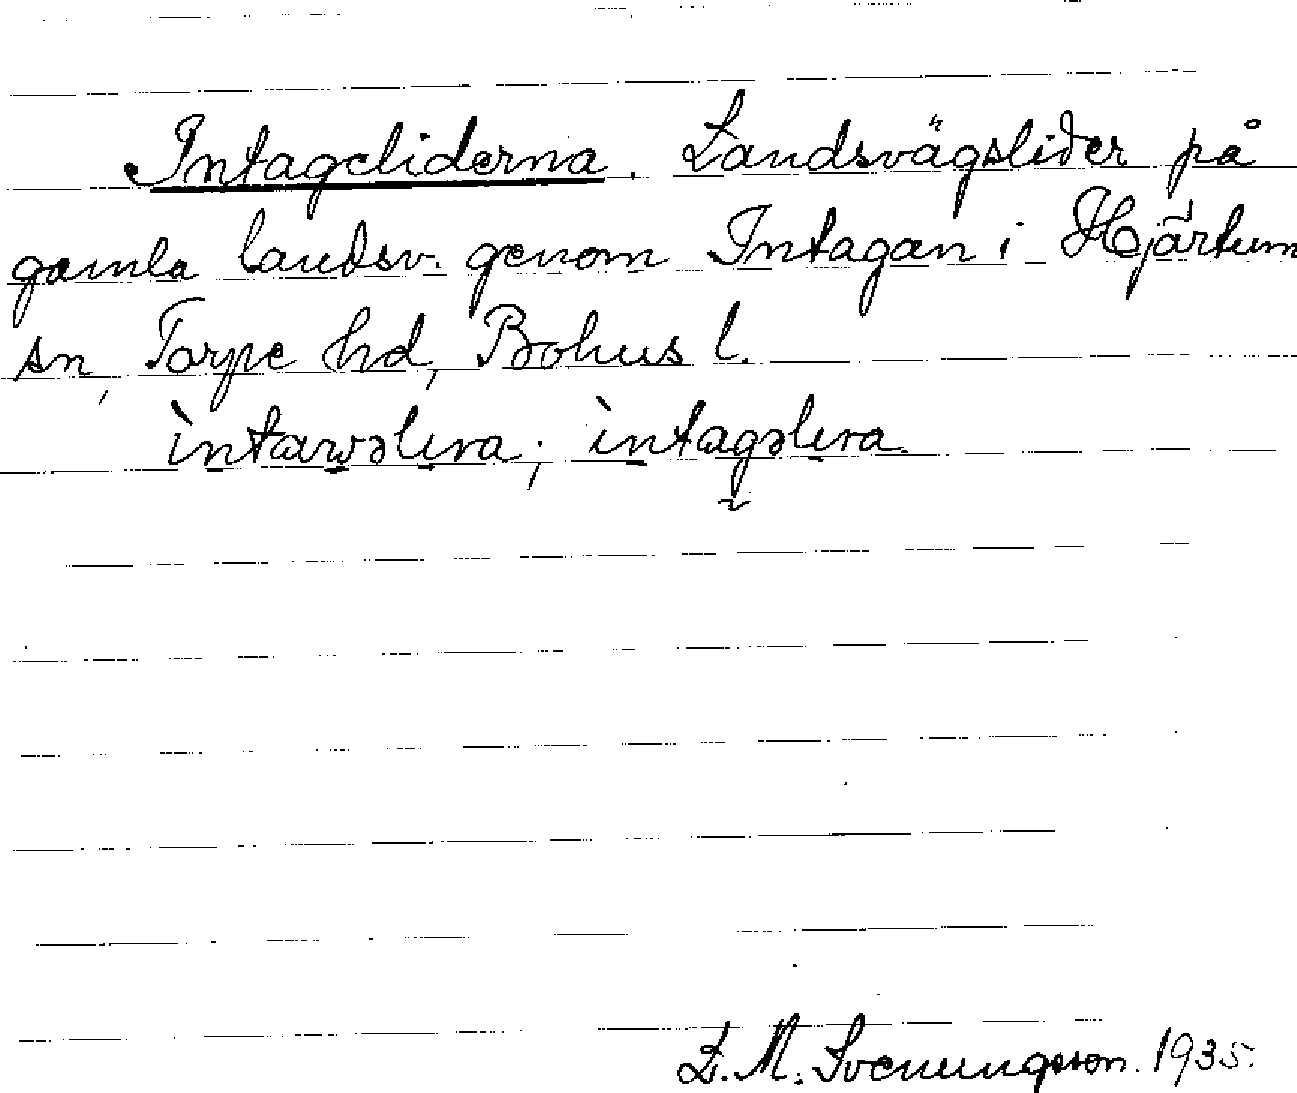 Intageliderna. Landsvägslider på
gamla landsv. genom Intagan i Hjärtum
sn, Torpe hd, Bohus l.
ìntawəlɩra; ìntagəlɩra.
L. M. Svenungsson. 1935.